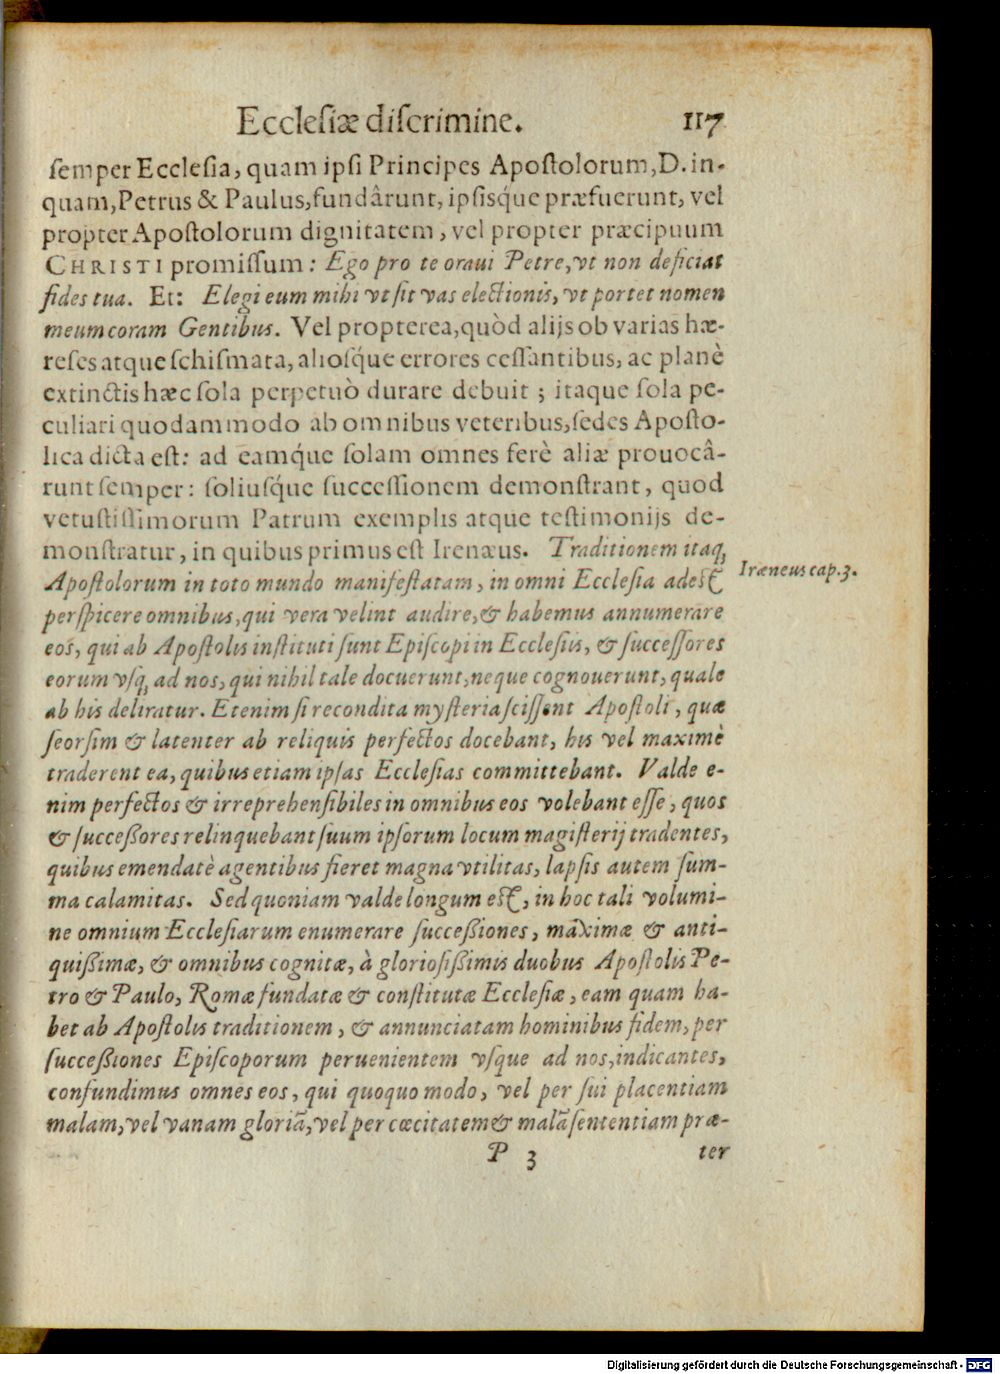 Ecclesiæ discrimine. 117
semper Ecclesia, quam ipsi Principes Apostolorum, D. in-
quam, Petrus & Paulus, fundârunt, ipsisq́ue præfuerunt, vel
propter Apostolorum dignitatem, vel propter præcipuum
CHRISTI promissum: Ego pro te oraui Petre, vt non deficiat
fides tua. Et: Elegi eum mihi vt sit vas electionis, vt portet nomen
meum coram Gentibus. Vel propterea, quòd alijs ob varias hæ-
reses atque schismata, aliosq́ue errores cessantibus, ac planè
extinctis hæc sola perpetuò durare debuit; itaque sola pe-
culiari quodammodo ab omnibus veteribus, sedes Aposto-
lica dicta est: ad eamq́ue solam omnes ferè aliæ prouocâ-
runt semper: soliusq́ue successionem demonstrant, quod
vetustissimorum Patrum exemplis atque testimonijs de-
monstratur, in quibus primus est Irenæus. Traditionem itaq;
Iræneus cap. 3.
Apostolorum in toto mundo manifestatam, in omni Ecclesia adest
perspicere omnibus, qui vera velint audire, & habemus annumerare
eos, qui ab Apostolis instituti sunt Episcopi in Ecclesiis, & successores
eorum vsq; ad nos, qui nihil tale docuerunt, neque cognouerunt, quale
ab his deliratur. Etenim si recondita mysteria scissent Apostoli, quæ
seorsim & latenter ab reliquis perfectos docebant, his vel maximè
traderent ea, quibus etiam ipsas Ecclesias committebant. Valde e-
nim perfectos & irreprehensibiles in omnibus eos volebant esse, quos
& successores relinquebant suum ipsorum locum magisterij tradentes,
quibus emendatè agentibus fieret magna vtilitas, lapsis autem sum-
ma calamitas. Sed quoniam valde longum est, in hoc tali volumi-
ne omnium Ecclesiarum enumerare successiones, maximæ & anti-
quissimæ, & omnibus cognitæ, à gloriosissimis duobus Apostolis Pe-
tro & Paulo, Romæ fundatæ & constitutæ Ecclesiæ, eam quam ha-
bet ab Apostolis traditionem, & annunciatam hominibus fidem, per
successiones Episcoporum peruenientem vsque ad nos, indicantes,
confundimus omnes eos, qui quoquo modo, vel per sui placentiam
malam, vel vanam gloriā, vel per cæcitatem & malā sententiam præ-
P 3 ter
Digitalisierung gefördert durch die Deutsche Forschungsgemeinschaft - DFG